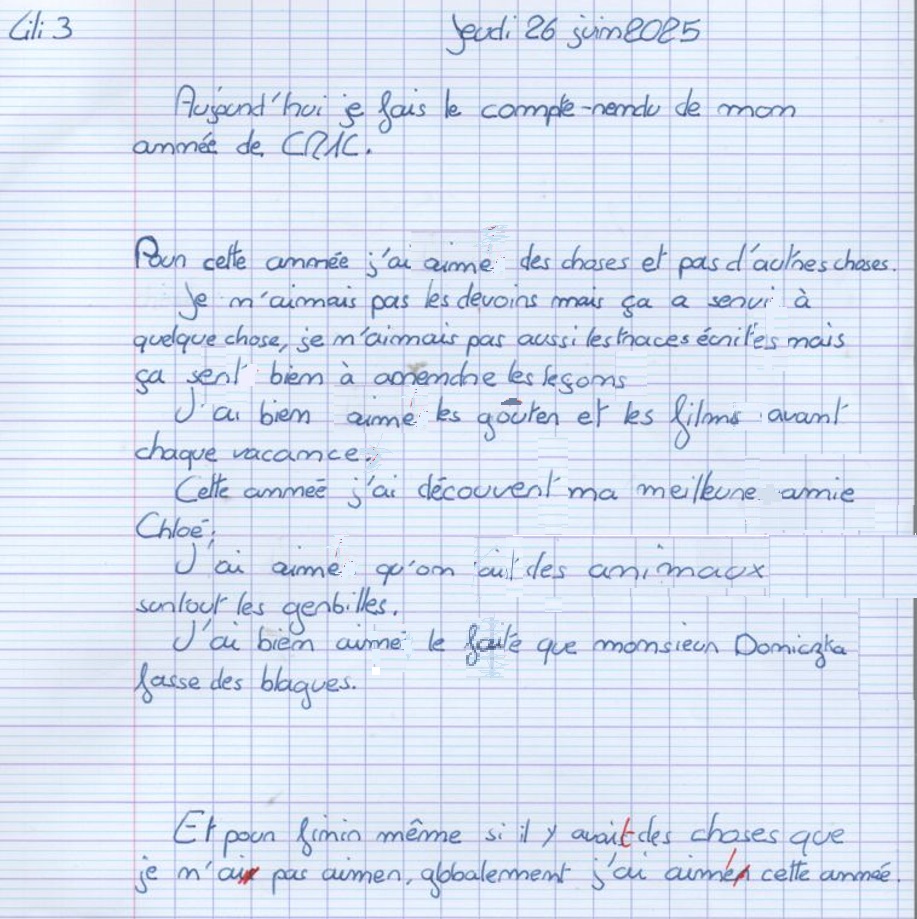 Lili 3
Jeudi 26 juin 2025
Aujourd'hui je fais le compte-rendu de mon
année de CM1C.
Pour cette année j'ai aimé des choses et pas d'autres choses.
Je n'aimais pas les devoirs mais ça a servi à
quelque chose, je n'aimais pas aussi les traces écrites mais
ça sert bien à apprendre les leçons
J'ai bien aimé les goûter et les films avant
chaque vacance.
Cette année j'ai découvert ma meilleure amie
Chloé.
J'ai aimé qu'on ait des animaux
surtout les gerbilles.
J'ai bien aimé le faite que monsieur Domiczka
fasse des blagues.
Et pour finir même si il y avait des choses que
je n'ai pas aimer, globalement j'ai aimé cette année.